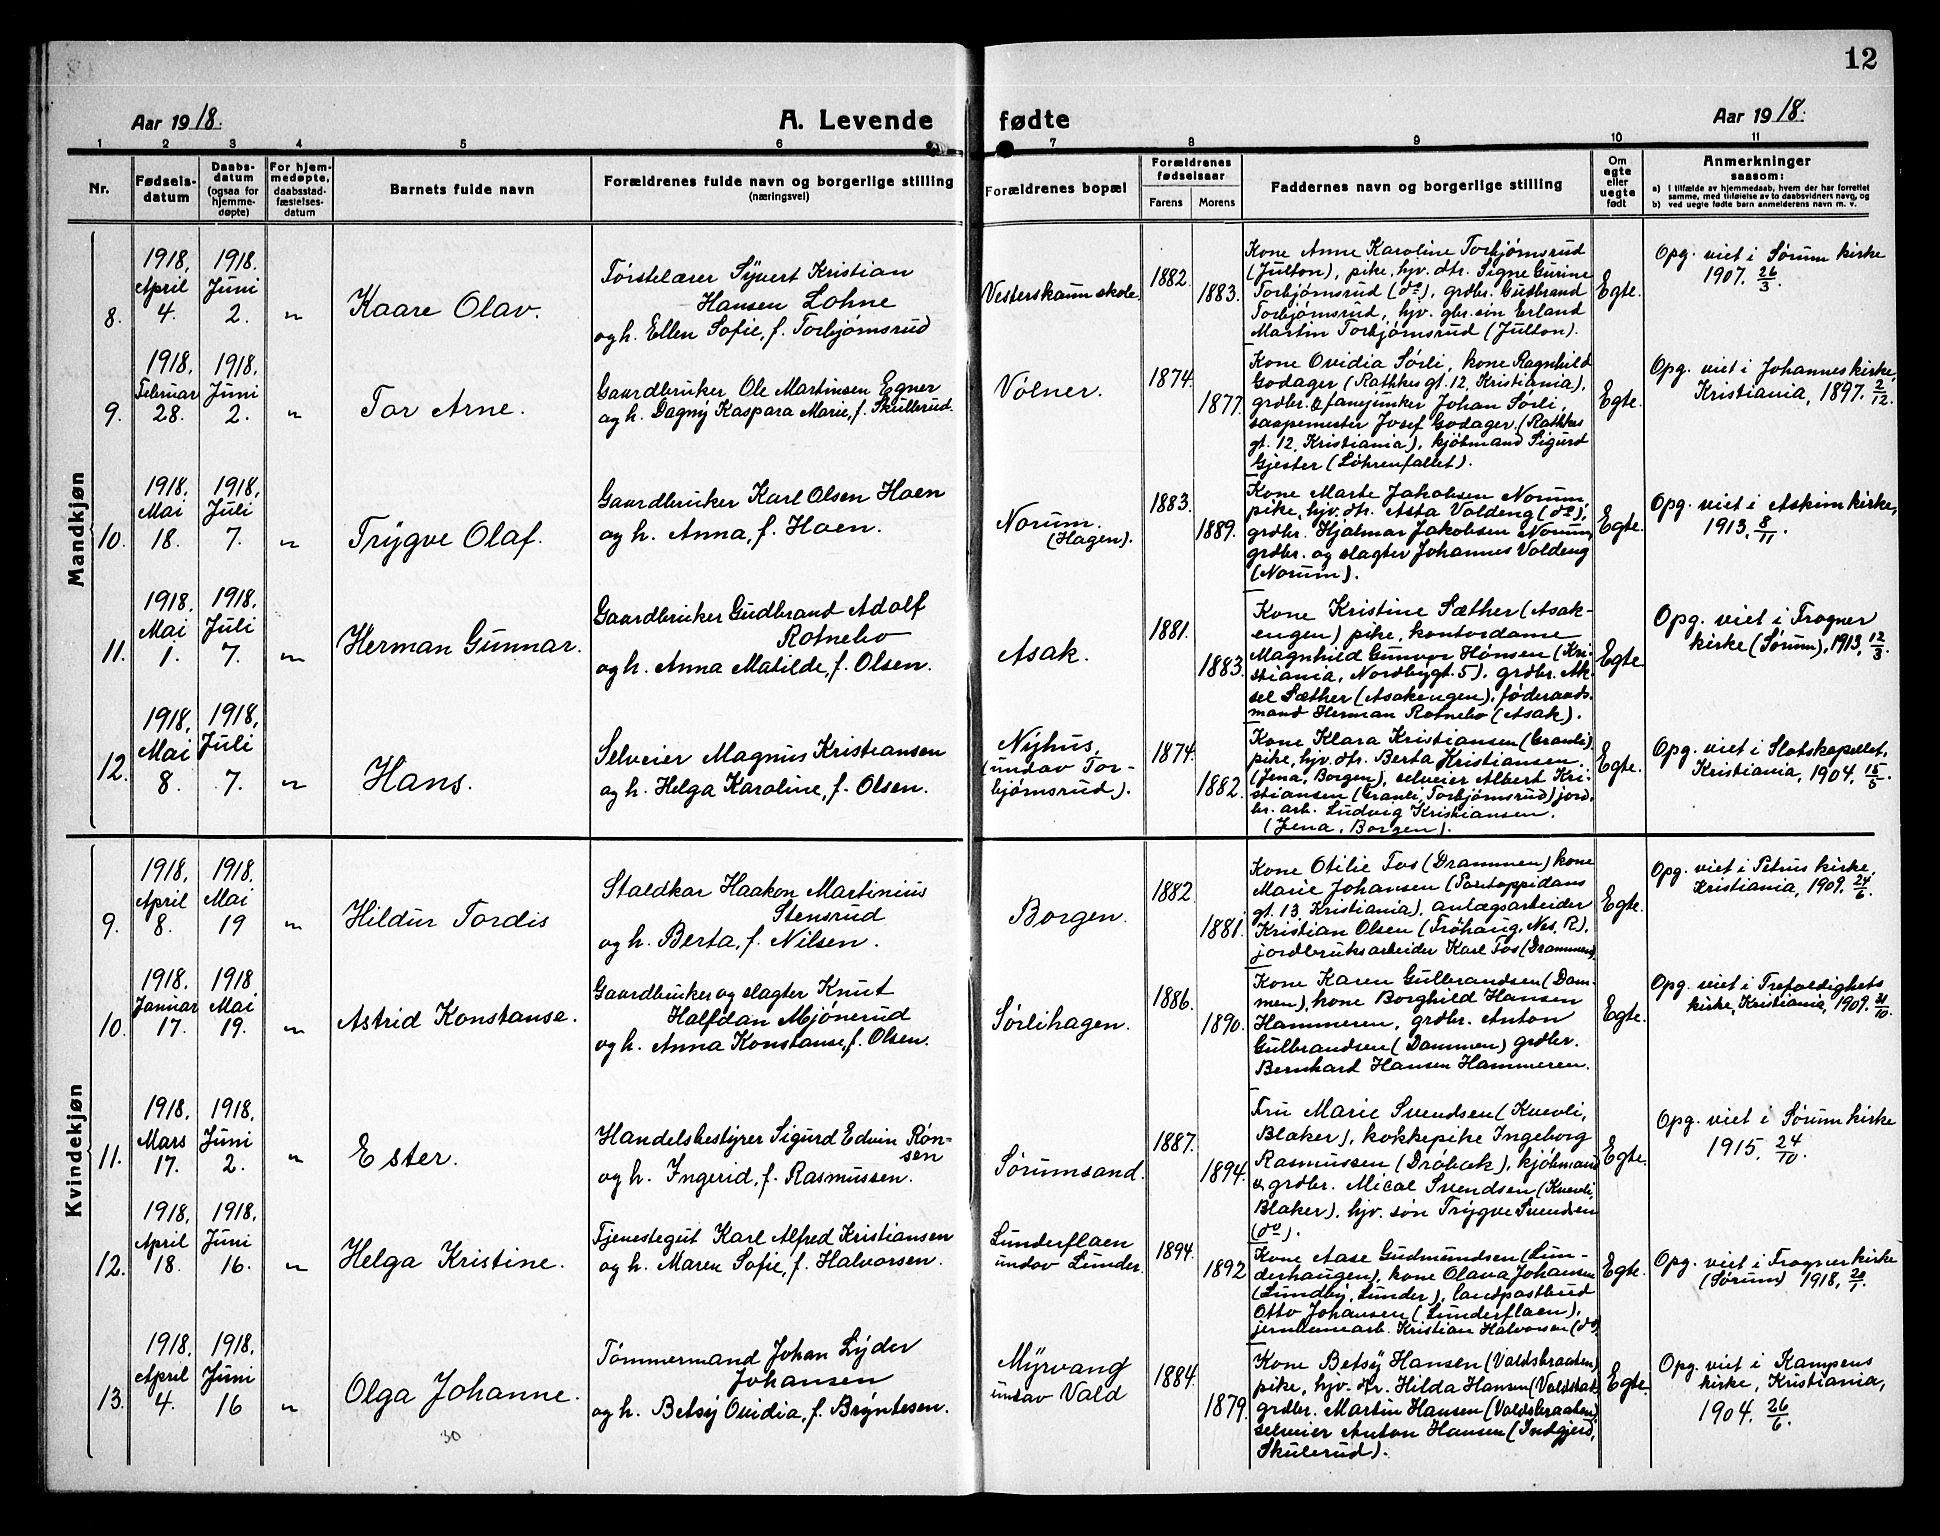 12
Aar 1918.
A. Levende
fødte
Aar 1918.
1 2 3 4 5 6 7 8 9 10 11
Nr.
Fødsels-
datum
Daabs-
datum
(ogsaa for
hjemme-
døpte)
For hjem-
medøpte,
daabsstad-
fæstelses-
datum
Barnets fulde navn
Forældrenes fulde navn og borgerlige stilling
(næringsvei)
Forældrenes bopæl
Forældrenes
fødselsaar
Farens
Morens
Faddernes navn og borgerlige stilling
Om
egte
eller
uegte
født
Anmerkninger
saasom:
a) I tilfælde av hjemmedaab, hvem der har forrettet
samme, med tilføielse av to daabsvidners navn, og
b) ved uegte fødte barn anmelderens navn m. v.
Mandkjøn
8.
1918.
April
4.
1918.
Juni
2.
"
Kaare Olav.
Tørstelærer Syvert Kristian
Hansen Lohne
og h. Ellen Sofie, f. Torbjørnsrud
Vesterskaun skole.
1882.
1883.
Kone Anne Karoline Torbjørnsrud
(Julton), pike, hjv. dtr. Signe Gurine
Torbjørnsrud (do), grdbr. Gudbrand
Torbjørnsrud, hjv. gbr. søn Erland
Martin Torbjørnsrud (Julton).
Egte.
Opg. viet i Sørum kirke
1907. 26/3.
9.
1918.
Februar
28.
1918.
Juni
2.
"
Tor Arne.
Gaardbruker Ole Martinsen Egner
og h. Dagny Kaspara Marie, f. Skullerud.
Vølner.
1874.
1877.
Kone Ovidia Sørli, kone Ragnhild
Godager (Rathkes gt. 12, Kristiania),
grdbr. & fanejunker Johan Sørli,
saapemester Josef Godager (Rathkes
gt. 12, Kristiania), kjøbmand Sigurd
Gjester (Løhrenfallet).
Egte.
Opg. viet i Johannes kirke,
Kristiania, 1897. 2/12.
10.
1918.
Mai
18.
1918.
Juli
7.
"
Trygve Olaf.
Gaardbruker Karl Olsen Haen
og h. Anna, f. Haen.
Norum.
(Hagen).
1883.
1889.
Kone Marte Jakobsen Norum,
pike, hjv. dtr. Asta Voldeng (do),
grdbr. Hjalmar Jakobsen Norum,
grdbr. og slagter Johannes Voldeng
(Norum).
Egte.
Opg. viet i Askim kirke,
1913, 8/11.
11.
1918.
Mai
1.
1918.
Juli
7.
"
Herman Gunnar.
Gaardbruker Gudbrand Adolf
Rotnebo
og h. Anna Matilde, f. Olsen.
Asak.
1881.
1883.
Kone Kristine Sæther (Asak-
engen) pike, kontordame
Magnhild Gunvor Hansen (Kri-
stiania, Nordbygt. 5), grdbr. Ak-
sel Sæther (Asakengen), føderaads-
mand Herman Rotnebo (Asak).
Egte.
Opg. viet i Frogner
kirke (Sørum), 1913, 12/3.
12.
1918.
Mai
8.
1918.
Juli
7.
"
Hans.
Selveier Magnus Kristiansen
og h. Helga Karoline, f. Olsen.
Nyhus,
(undav Tor-
bjørnsrud).
1874.
1882.
Kone Klara Kristiansen (Granli),
pike, hjv. dtr. Berta Kristiansen
(Jena, Borgen), selveier Albert Kri-
stiansen (Granli, Torbjørnsrud) jord-
br. arb. Ludvig Kristiansen.
(Jena, Borgen).
Egte.
Opg. viet i Slotskapellet,
Kristiania, 1904, 15/5.
Kvindekjøn
9.
1918.
April
8.
1918.
Mai
19
"
Hildur Tordis
Staldkar Haakon Martinius
Stensrud
og h. Berta, f. Nilsen.
Borgen.
1882.
1881.
Kone Otilie Fos (Drammen) kone
Marie Johansen (Pontoppidans
gt. 13, Kristiania), anlægsarbeider
Kristian Olsen (Frøhaug, Nes, R),
jordbruksarbeider Karl Fos (Drammen)
Egte.
Opg. viet i Petrus kirke,
Kristiania, 1909, 24/6.
10.
1918.
Januar
17.
1918.
Mai
19.
"
Astrid Konstanse.
Gaardbruker og slagter Knut
Halfdan Mjønerud
og h. Anna Konstanse, f. Olsen.
Sørlihagen.
1886.
1890.
Kone Karen Gulbrandsen (Dam-
men), kone Borghild Hansen
Hammeren, grdbr. Anton
Gulbrandsen (Dammen) grdbr.
Bernhard Hansen Hammeren.
Egte.
Opg. viet i Trefoldighets
kirke, Kristiania, 1909. 31/10.
11.
1918.
Mars
17.
1918.
Juni
2.
"
Ester.
Handelsbestyrer Sigurd Edvin Røn-
sen
og h. Ingerid, f. Rasmussen.
Sørumsand.
1887.
1894.
Fru Marie Svendsen (Kuevli,
Blaker), kokkepike Ingeborg
Rasmussen (Drøbak), kjøbmand
& grdbr. Mical Svendsen (Kuevli,
Blaker), hjv. søn Trygve Svendsen
(do).
Egte.
Opg. viet i Sørum kirke
1915, 24/10.
12.
1918.
April
18.
1918.
Juni
16.
"
Helga Kristine.
Tjenestegut Karl Alfred Kristiansen
og h. Maren Sofie, f. Halvorsen.
Lunderflaen
undav Lunder.
1894.
1892
Kone Aase Gudmundsen (Lun-
derhaugen), kone Olava Johansen
(Lundby, Lunder), landpostbud
Otto Johansen (Lunderflaen),
jernbanearb. Kristian Halvorsen (do)
Egte.
Opg. viet i Frogner kirke
(Sørum) 1918, 20/1.
13.
1918.
April
4.
1918.
Juni
16
"
Olga Johanne.
30
Tømmermand Johan Lyder
Johansen
og h. Betsy Ovidia, f. Bryntesen.
Myrvang
undav Vald
1884.
1879.
Kone Betsy Hansen (Valdsbraaten)
pike, hjv. dtr. Hilda Hansen (Valdsbraa)
grdbr. Martin Hansen (Valdsbraaten),
selveier Anton Hansen (Indgjerd,
Skulerud).
Egte.
Opg. viet i Kampens
kirke, Kristiania,
1904. 26/6.